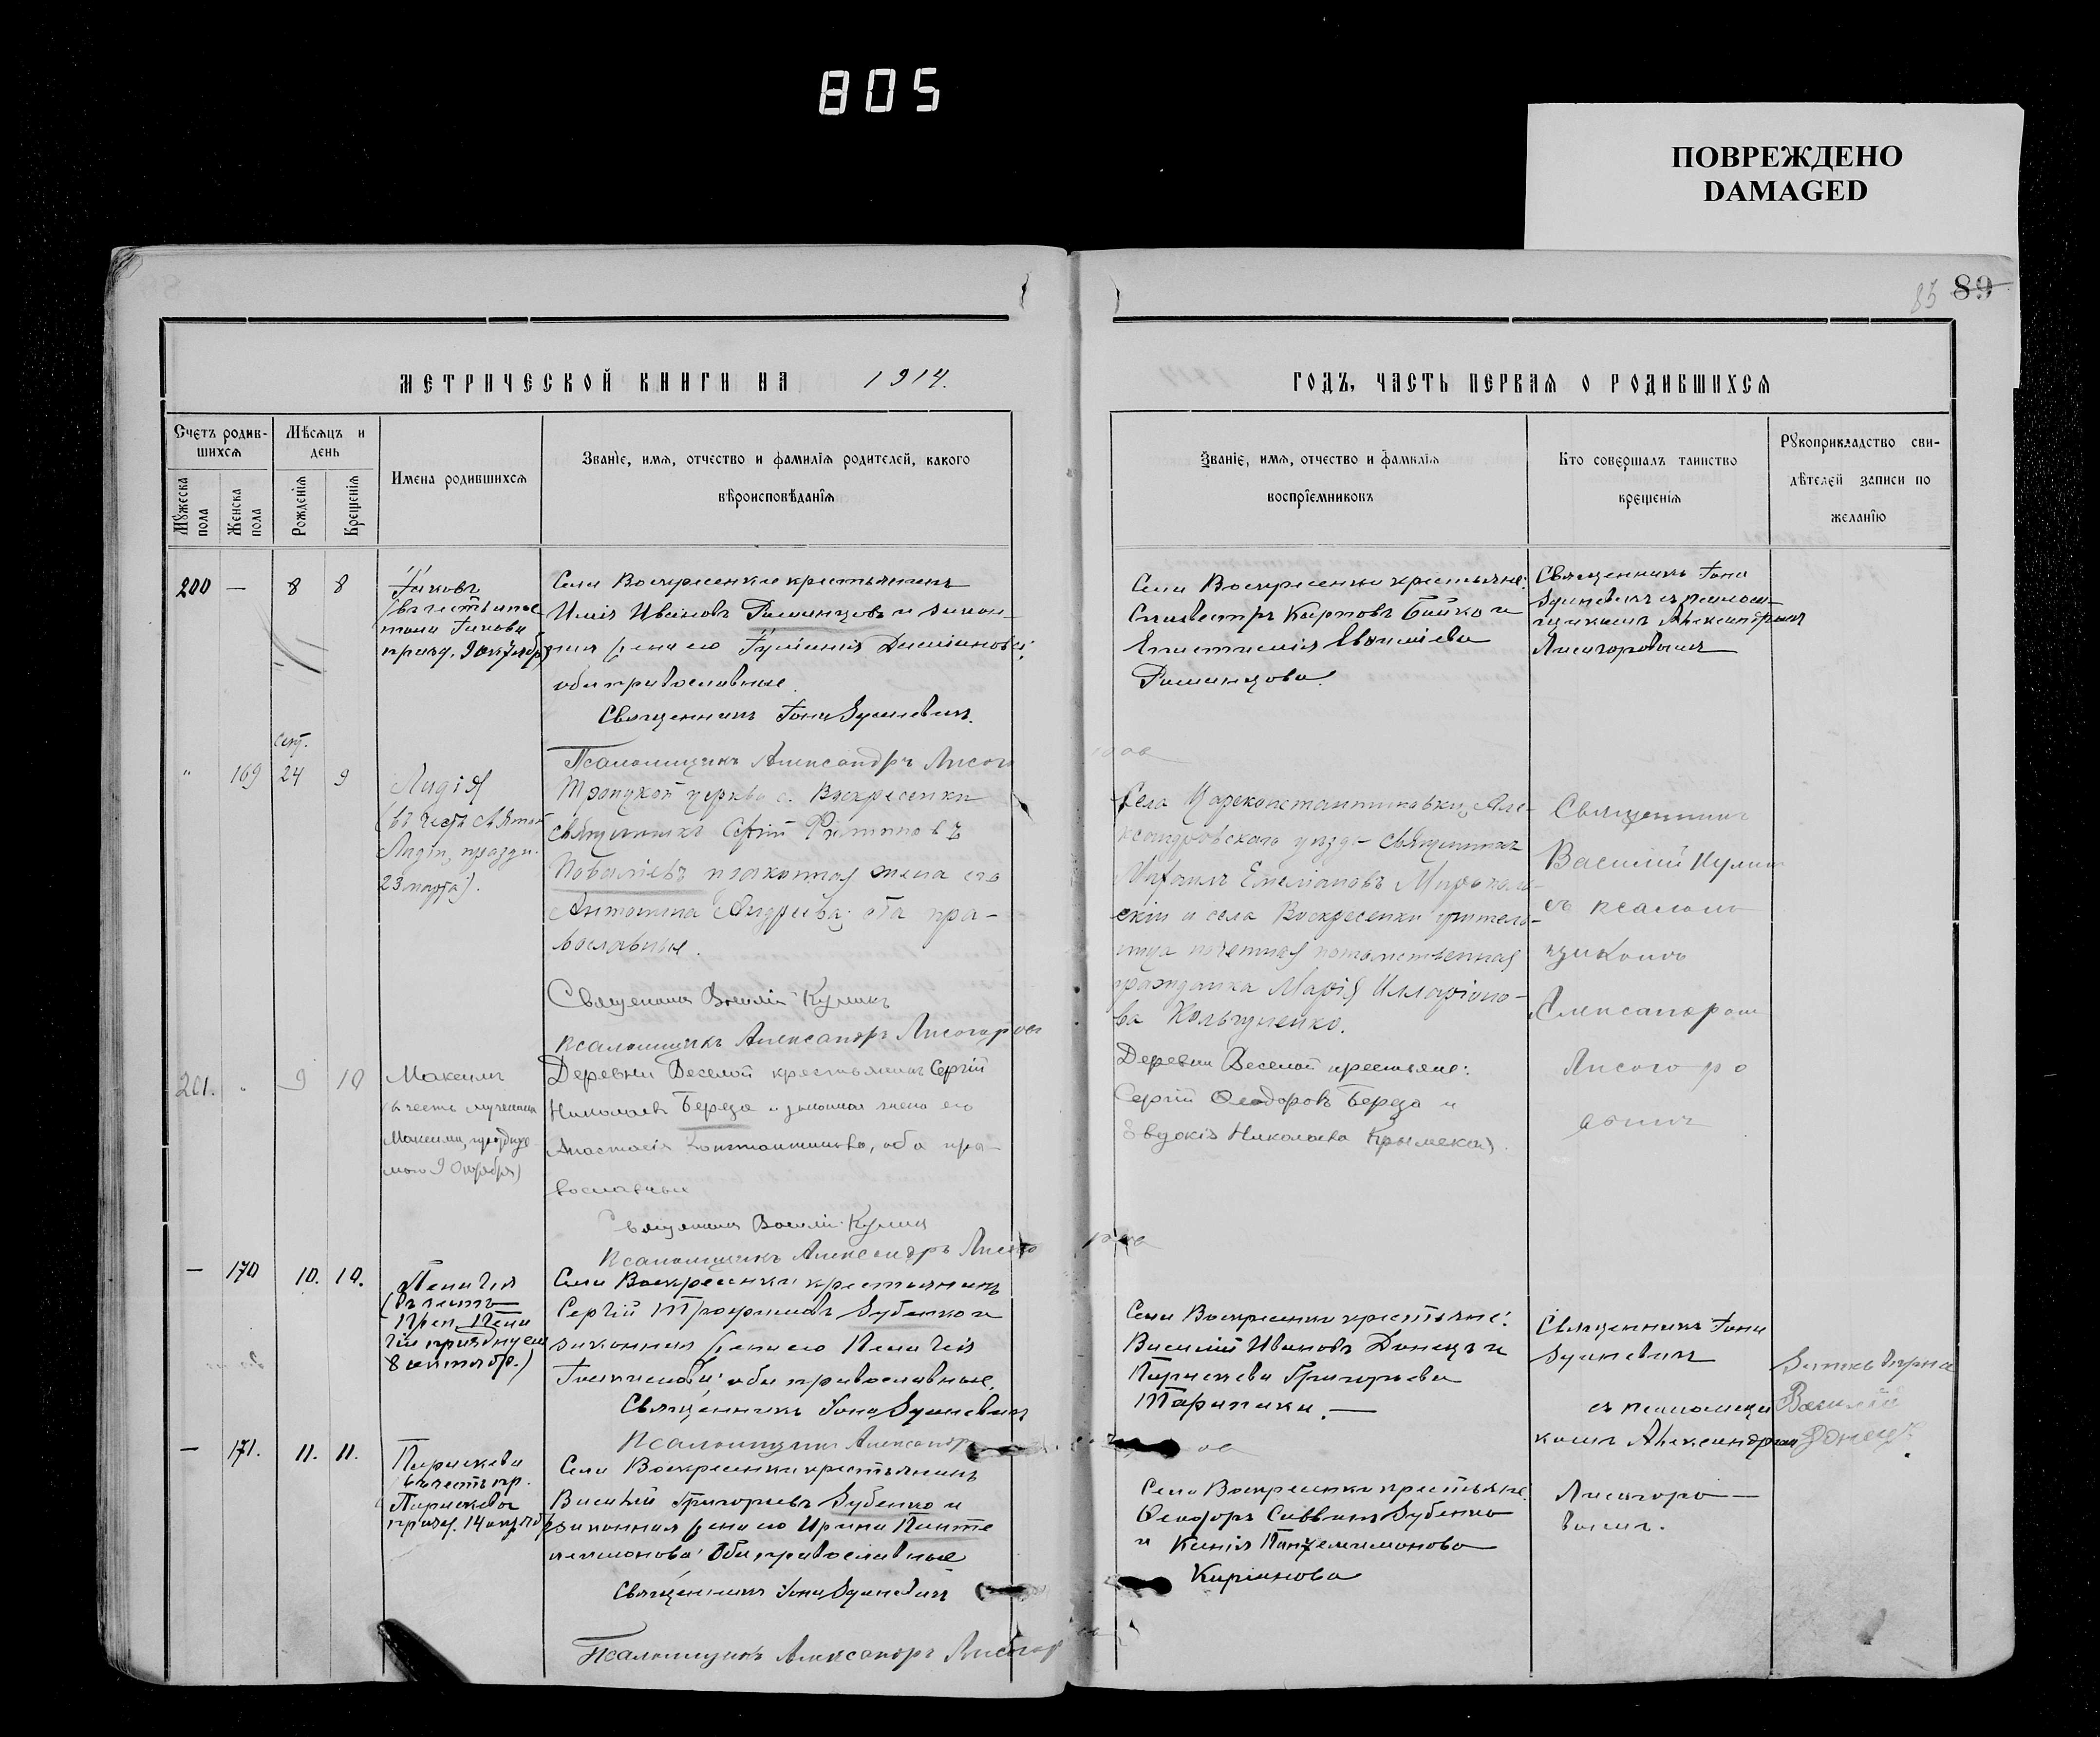 805
ПОВРЕЖДЕНО
DAMAGED
85 89
МЕТРИЧЕСКОЙ КНИГИ НА 1914.
ГОДЪ, ЧАСТЬ ПЕРВАЯ О РОДИВШИХСЯ
Счетъ родив-
шихся
Мужеска пола
Женска пола
Мѣсяцъ и
день
Рожденія
Крещенія
Имена родившихся
Званіе, имя, отчество и фамилія родителей, какого
вѣроисповѣданія
Званіе, имя, отчество и фамилія
воспріемниковъ
Кто совершалъ таинство
крещенія
Рукоприкладство сви-
дѣтелей записи по
желанію
200 — 8 8
Іаковъ
Села Воскресенки крестьянинъ
Илія Ивановъ Романцовъ и закон-
ная жена его Іуліанія Даміанова:
оба православные.
Священникъ Іона
Села Воскресенки крестьяне:
Сильвестръ Карповъ Бойко и
Романцова.
Священникъ Іона
Александромъ
Лисогоровымъ
Псаломщикъ Александръ Лисого
сент.
" 169 24 9
Лидія
(въ честь святой
Лидіи, праздн.
23 марта).
Троицкой церкви с. Воскресенки
священникъ Сергій
и законная жена его
Антонина Андреева; оба пра-
вославные.
Священникъ Василій Куликъ
псаломщикъ Александръ Лисогоров
Села Цареконстантиновки, Але-
ксандровскаго уѣзда священникъ
Михаилъ Емеліановъ
скій и села Воскресенки учитель-
ница почетная потомственная
гражданка Марія Илларіоно-
ва
Священникъ
Василій Кулик
съ псалом
щикомъ
Александром
Лисогоро
вымъ
201. " 9 10
Максимъ
(въ честь мученика
Максима, празднуе-
маго 9 Октября)
Деревни Веселой крестьянинъ Сергій
Николаевъ Береза и законная жена его
Анастасія Константинова, оба пра-
вославные
Священникъ Василій Кулик
Псаломщикъ Александръ Лисого
Деревни Веселой крестьяне:
Сергій Ѳеодоровъ Береза и
Евдокія Николаева Крымская.
— 170 10. 10.
Пелагія
(въ честь
Преп. Пела
гіи празднуем
8 октября.)
Села Воскресенки крестьянинъ
Сергій Трофимовъ Зубенко и
законная жена его Пелагія
оба православные.
Священникъ Іона
Псаломщикъ Александръ
Села Воскресенки крестьяне:
Василій Ивановъ Донецъ и
Параскева Григорьева
Священникъ Іона
съ псаломщи
комъ Александромъ
Лисогоро—
вымъ.
Василій
Донецъ.
— 171. 11. 11.
Параскева
въ честь пр.
Параскевы
празд. 14 октября
Села Воскресенки крестьянинъ
Василій Григорьевъ Зубенко и
законная жена его Ирина Панте
леимонова: оба православные
Священникъ Іона
Псаломщикъ Александръ Лисогор
Села Воскресенки крестьяне:
Ѳеодоръ Саввинъ Зубенко
и Ксенія Пантелеимонова
Киріянова